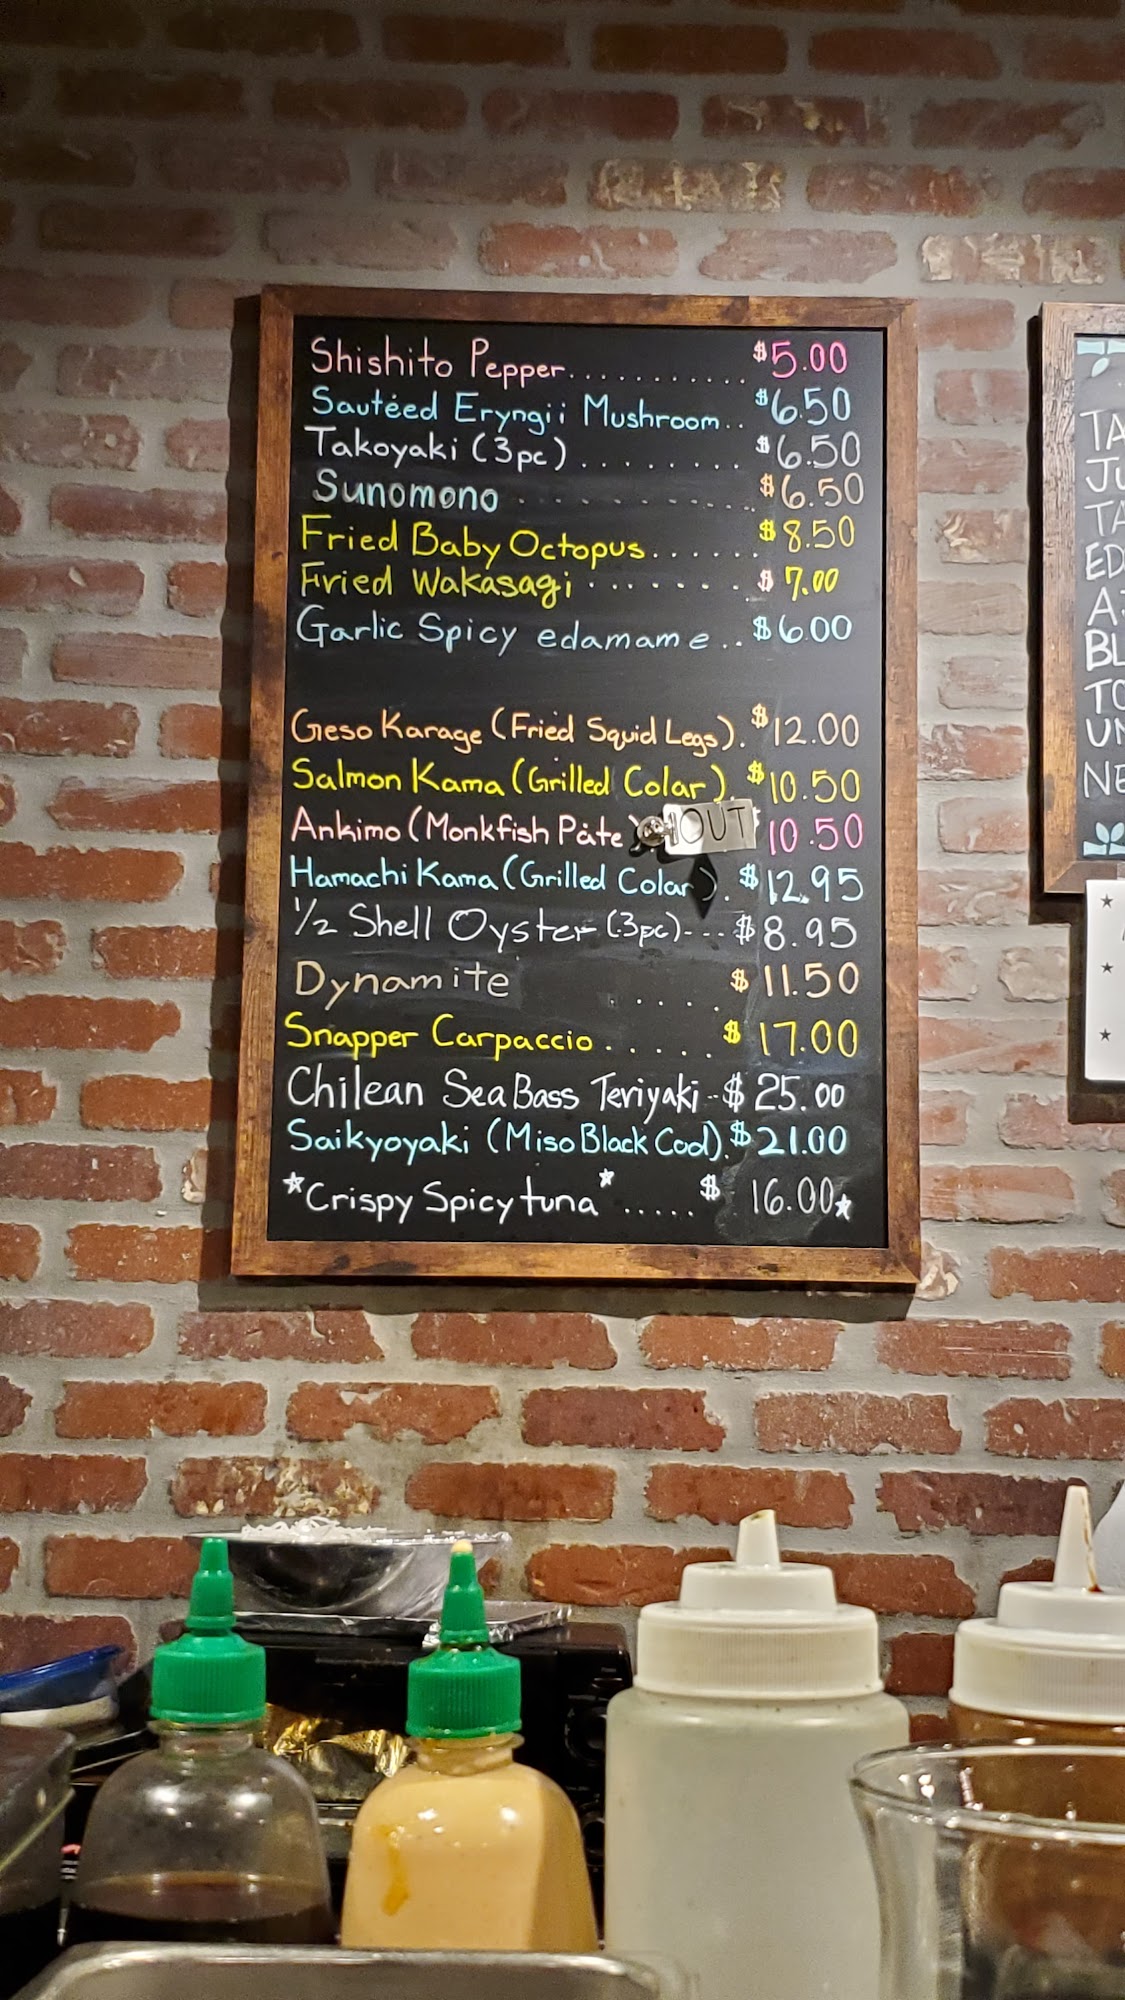 Shishito Pepper........... $5.00
Sautéed Eryngii Mushroom.. $6.50
Takoyaki (3pc)........ $6.50
Sunomono .......... $6.50
Fried Baby Octopus...... $8.50
Fried Wakasagi ....... $7.00
Garlic Spicy edamame.. $6.00
Geso Karage (Fried Squid Legs). $12.00
Salmon Kama (Grilled Colar). $10.50
Ankimo (Monkfish Pàte) OUT 10.50
Hamachi Kama (Grilled Colar). $12.95
1/2 Shell Oyster (3pc)--.. $8.95
Dynamite .... $11.50
Snapper Carpaccio..... $17.00
Chilean Sea Bass Teriyaki -- $25.00
Saikyoyaki (Miso Black Cod). $21.00
*Crispy Spicy tuna* ..... $16.00*
TA
JU
TA
ED
BL
TO
UN
NE